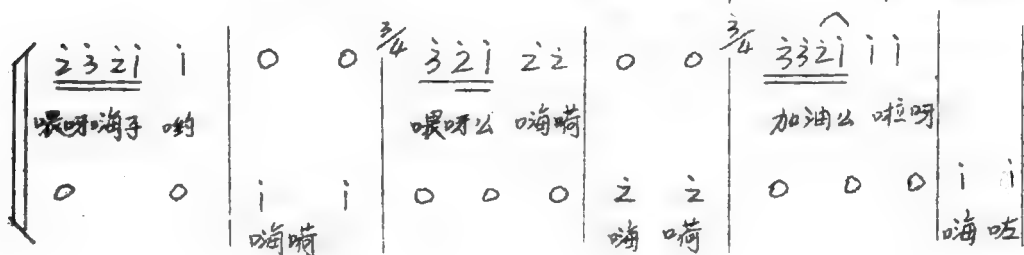 2̇ 3̇ 2̇ 1̇ 1̇ | 0 0 | 3/4 3̇ 2̇ 1̇ 2̇ 2̇ | 0 0 | 3/4 3̇ 3̇ 2̇ 1̇ 1̇ 1̇ |
喂呀嗨子 哟 喂呀么 嗨嗬 加油么 啦呀
0 0 | 1̇ 1̇ | 0 0 0 | 2̇ 2̇ | 0 0 0 | 1̇ 1̇
嗨嗬 嗨 嗬 嗨 咗